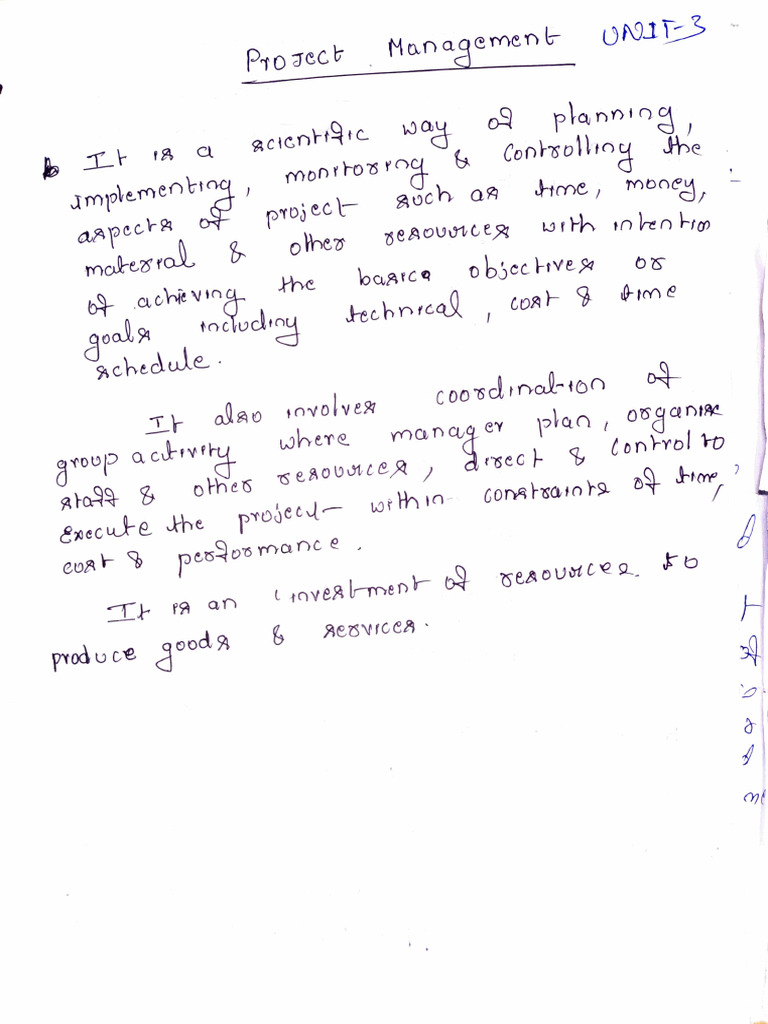 Project Management UNIT-3
It is a scientific way of planning,
implementing, monitoring & controlling the
aspects of project such as time, money,
material & other resources with intention
of achieving the basic objectives or
goals including technical, cost & time
schedule.
It also involves coordination of
group activity where manager plan, organise
staff & other resources, direct & control to
Execute the project within constraints of time,
cost & performance.
It is an investment of resources to
produce goods & services.